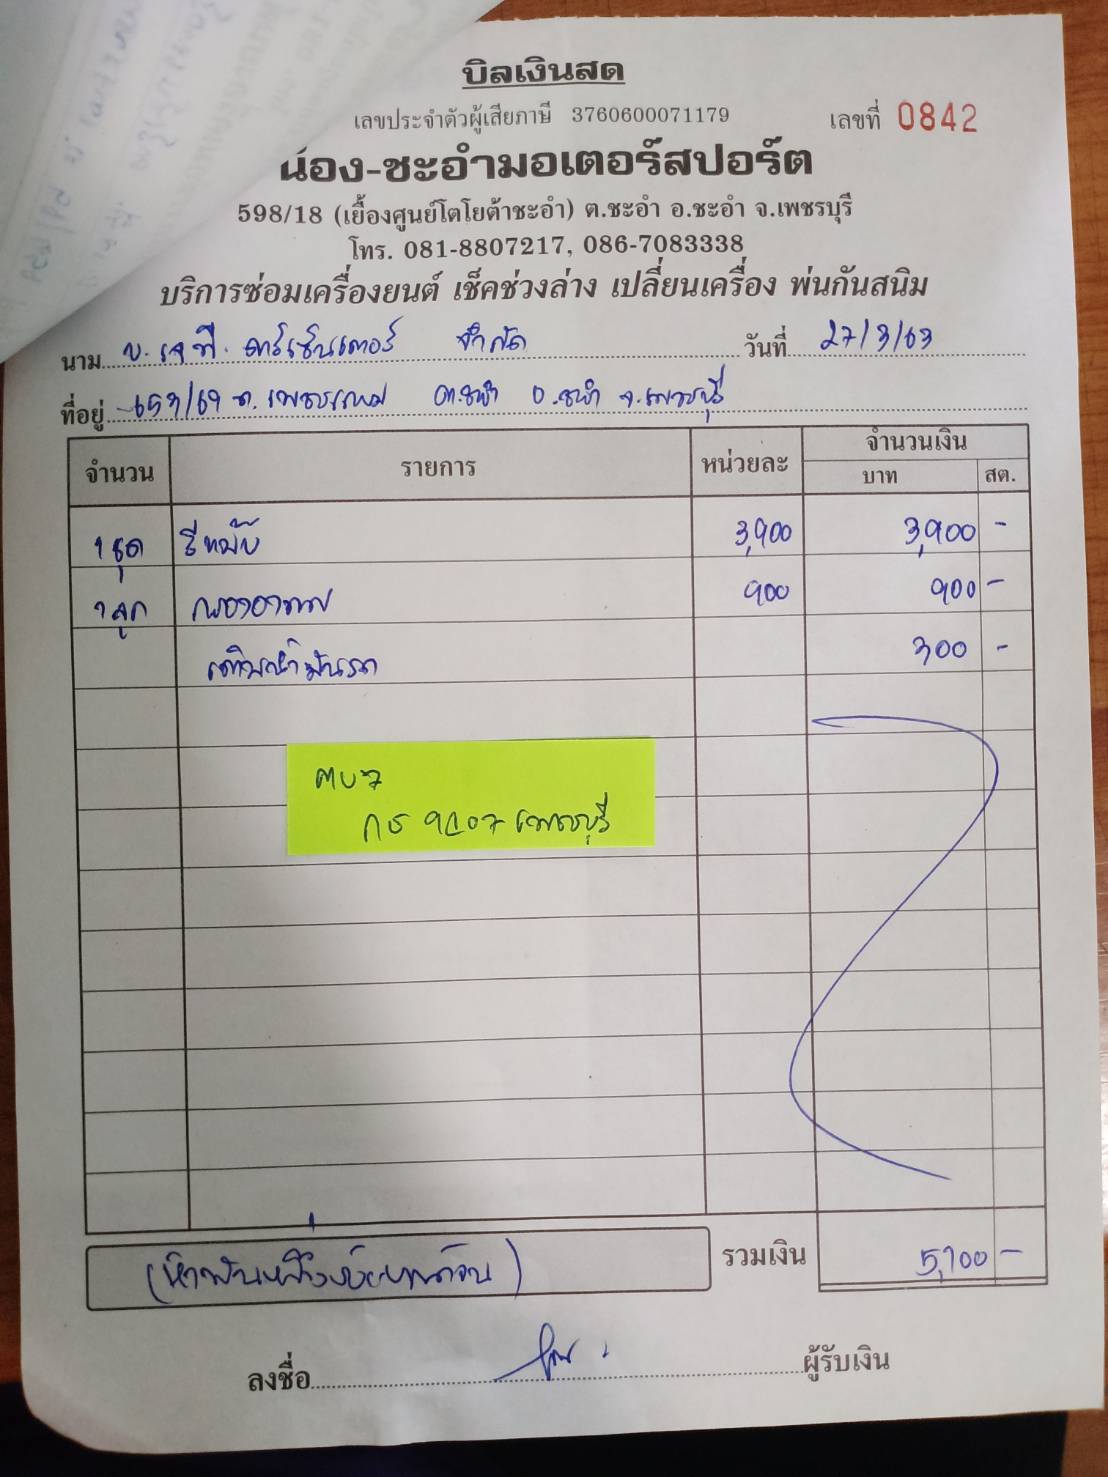 บิลเงินสด
เลขประจำตัวผู้เสียภาษี 3760600071179
เลขที่ 0842
น้อง-ชะอำมอเตอร์สปอร์ต
598/18 (เยื้องศูนย์โตโยต้าชะอำ) ต.ชะอำ อ.ชะอำ จ.เพชรบุรี
โทร. 081-8807217, 086-7083338
บริการซ่อมเครื่องยนต์ เช็คช่วงล่าง เปลี่ยนเครื่อง พ่นกันสนิม
นาม บ. เจ.ที. คาร์เซ็นเตอร์ จำกัด วันที่ 27/3/63
ที่อยู่ 653/69 ถ.เพชรเกษม ต.ชะอำ อ.ชะอำ จ.เพชรบุรี
จำนวน รายการ หน่วยละ จำนวนเงิน
บาท สต.
1 ชุด รีแม็พ 3,900 3,900 -
1 ลูก กรองอากาศ 900 900 -
เติมน้ำมันรถ 300 -
กธ เพชรบุรี
(ห้าพันหนึ่งร้อยบาทถ้วน) รวมเงิน 5,100 -
ลงชื่อ ผู้รับเงิน